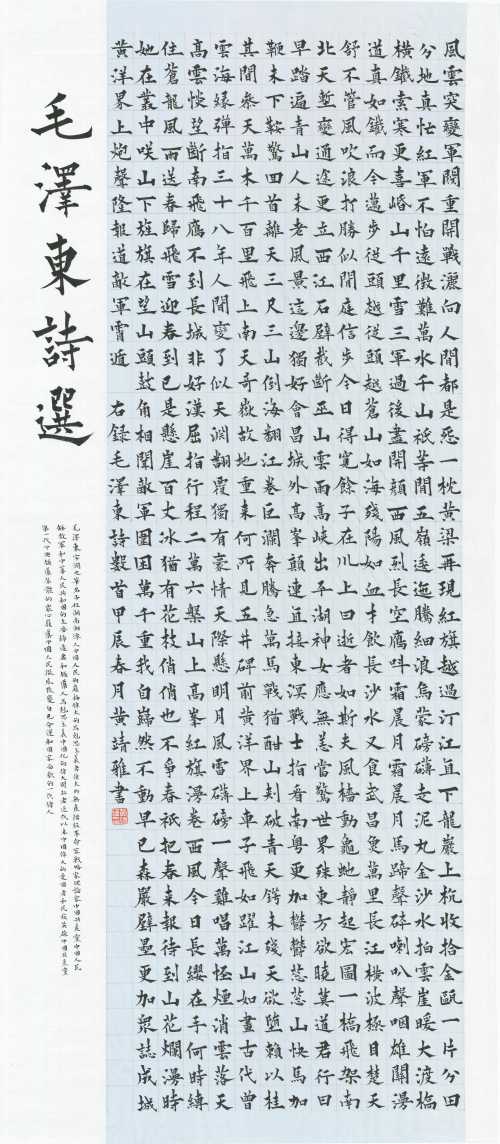 風雲突變軍閥重開戰灑向人間都是怨一枕黃梁再現紅旗越過汀江直下龍巖上杭收拾金甌一片分田
分地真忙紅軍不怕遠徵難萬水千山祇等閒五嶺逶迤騰細浪烏蒙磅礴走泥丸金沙水拍雲崖暖大渡橋
橫鐵索寒更喜岷山千里雪三軍過後盡開顏西風烈長空鷹叫霜晨月霜晨月馬蹄聲碎喇叭聲咽雄關漫
道真如鐵而今邁步從頭越從頭越蒼山如海殘陽如血才飲長沙水又食武昌魚萬里長江橫波極目楚天
舒不管風吹浪打勝似閒庭信步今日得寬餘子在川上曰逝者如斯夫風檣動龜虵靜起宏圖一橋飛架南
北天塹變通途更立西江石壁截斷巫山雲雨高峽出平湖神女應無恙當驚世界殊東方欲曉莫道君行曰
早踏遍青山人未老風景這邊獨好會昌城外高峯顛連直接東溟戰士指看南粵更加鬱鬱蔥蔥山快馬加
鞭未下鞍驚回首離天三尺三山倒海翻江卷巨瀾奔騰急萬馬戰猶酣山刺破青天鍔未殘天欲墮賴以柱
其間參天萬木千百里飛上南天奇嶽故地重來何所見五井碑前黃洋界上車子飛如躍江山如畫古代曾
雲海綠彈指三十八年人間變了似天淵翻覆獨有豪情天際懸明月風雷磅礴一聲雞唱萬怪煙消雲落天
高雲惔望斷南飛鷹不到長城非好漢屈指行程二萬六槃山上高峯紅旗漫卷西風今日長纓在手何時縛
住蒼龍風雨送春歸飛雪迎春到已是懸崖百丈冰猶有花枝俏俏也不爭春祇把春來報待到山花爛漫時
她在叢中咲山下旌旗在望山頭鼓角相聞敵軍圍困萬千重我自巋然不動早已森嚴壁壘更加衆誌成城
黃洋界上炮聲隆報道敵軍宵遁 右錄毛澤東詩數首甲辰春月黃靖雅書
毛澤東詩選